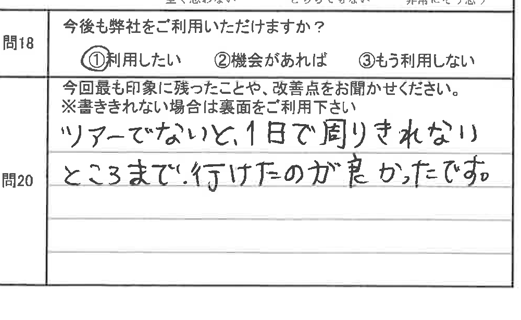 問18
今後も弊社をご利用いただけますか？
①利用したい ②機会があれば ③もう利用しない
問20
今回最も印象に残ったことや、改善点をお聞かせください。
※書ききれない場合は裏面をご利用下さい
ツアーでないと、1日で周りきれない
ところまで、行けたのが良かったです。